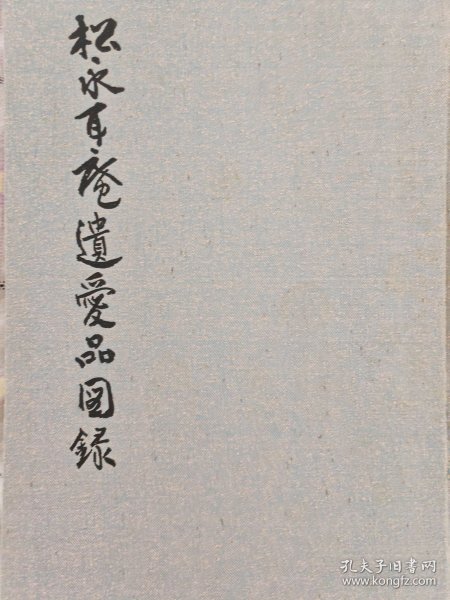 松永耳庵遺愛品図録
孔夫子旧书网
www.kongfz.com